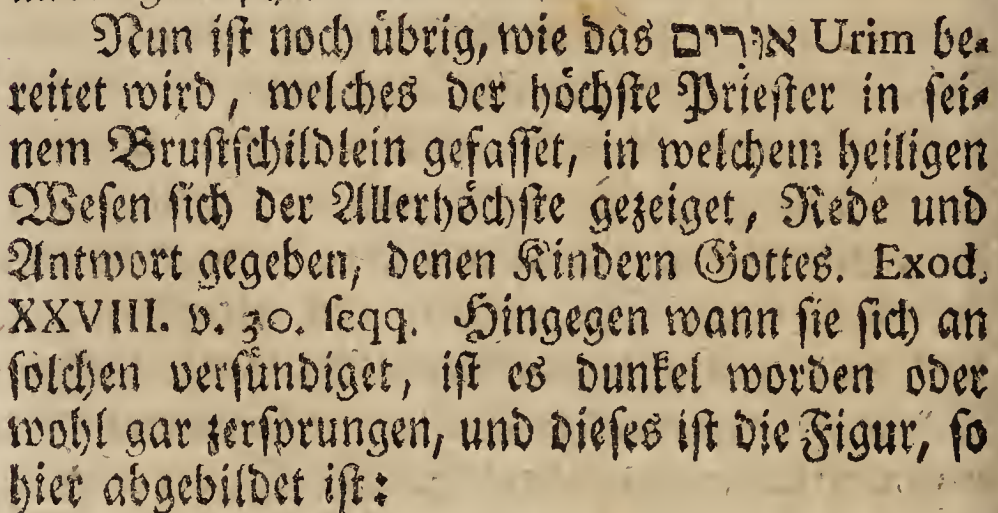 Nun ist noch übrig, wie das אורים Urim be-
reitet wird, welches der höchste Priester in sei-
nem Brustschildlein gefasset, in welchem heiligen
Wesen sich der Allerhöchste gezeiget, Rede und
Antwort gegeben, denen Kindern Gottes. Exod.
XXVIII. v. 30. seqq. Hingegen wann sie sich an
solchen versündiget, ist es dunkel worden oder
wohl gar zersprungen, und dieses ist die Figur, so
hier abgebildet ist: